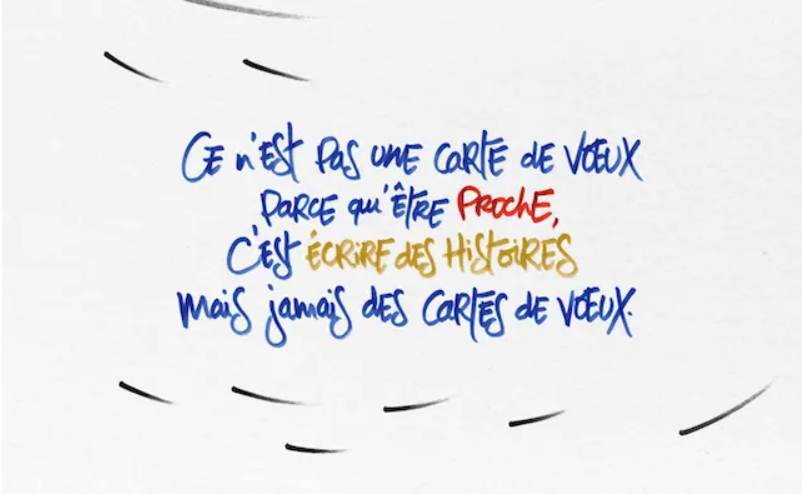 Ce n'est pas une carte de vœux
parce qu'être proche,
c'est écrire des histoires
mais jamais des cartes de vœux.